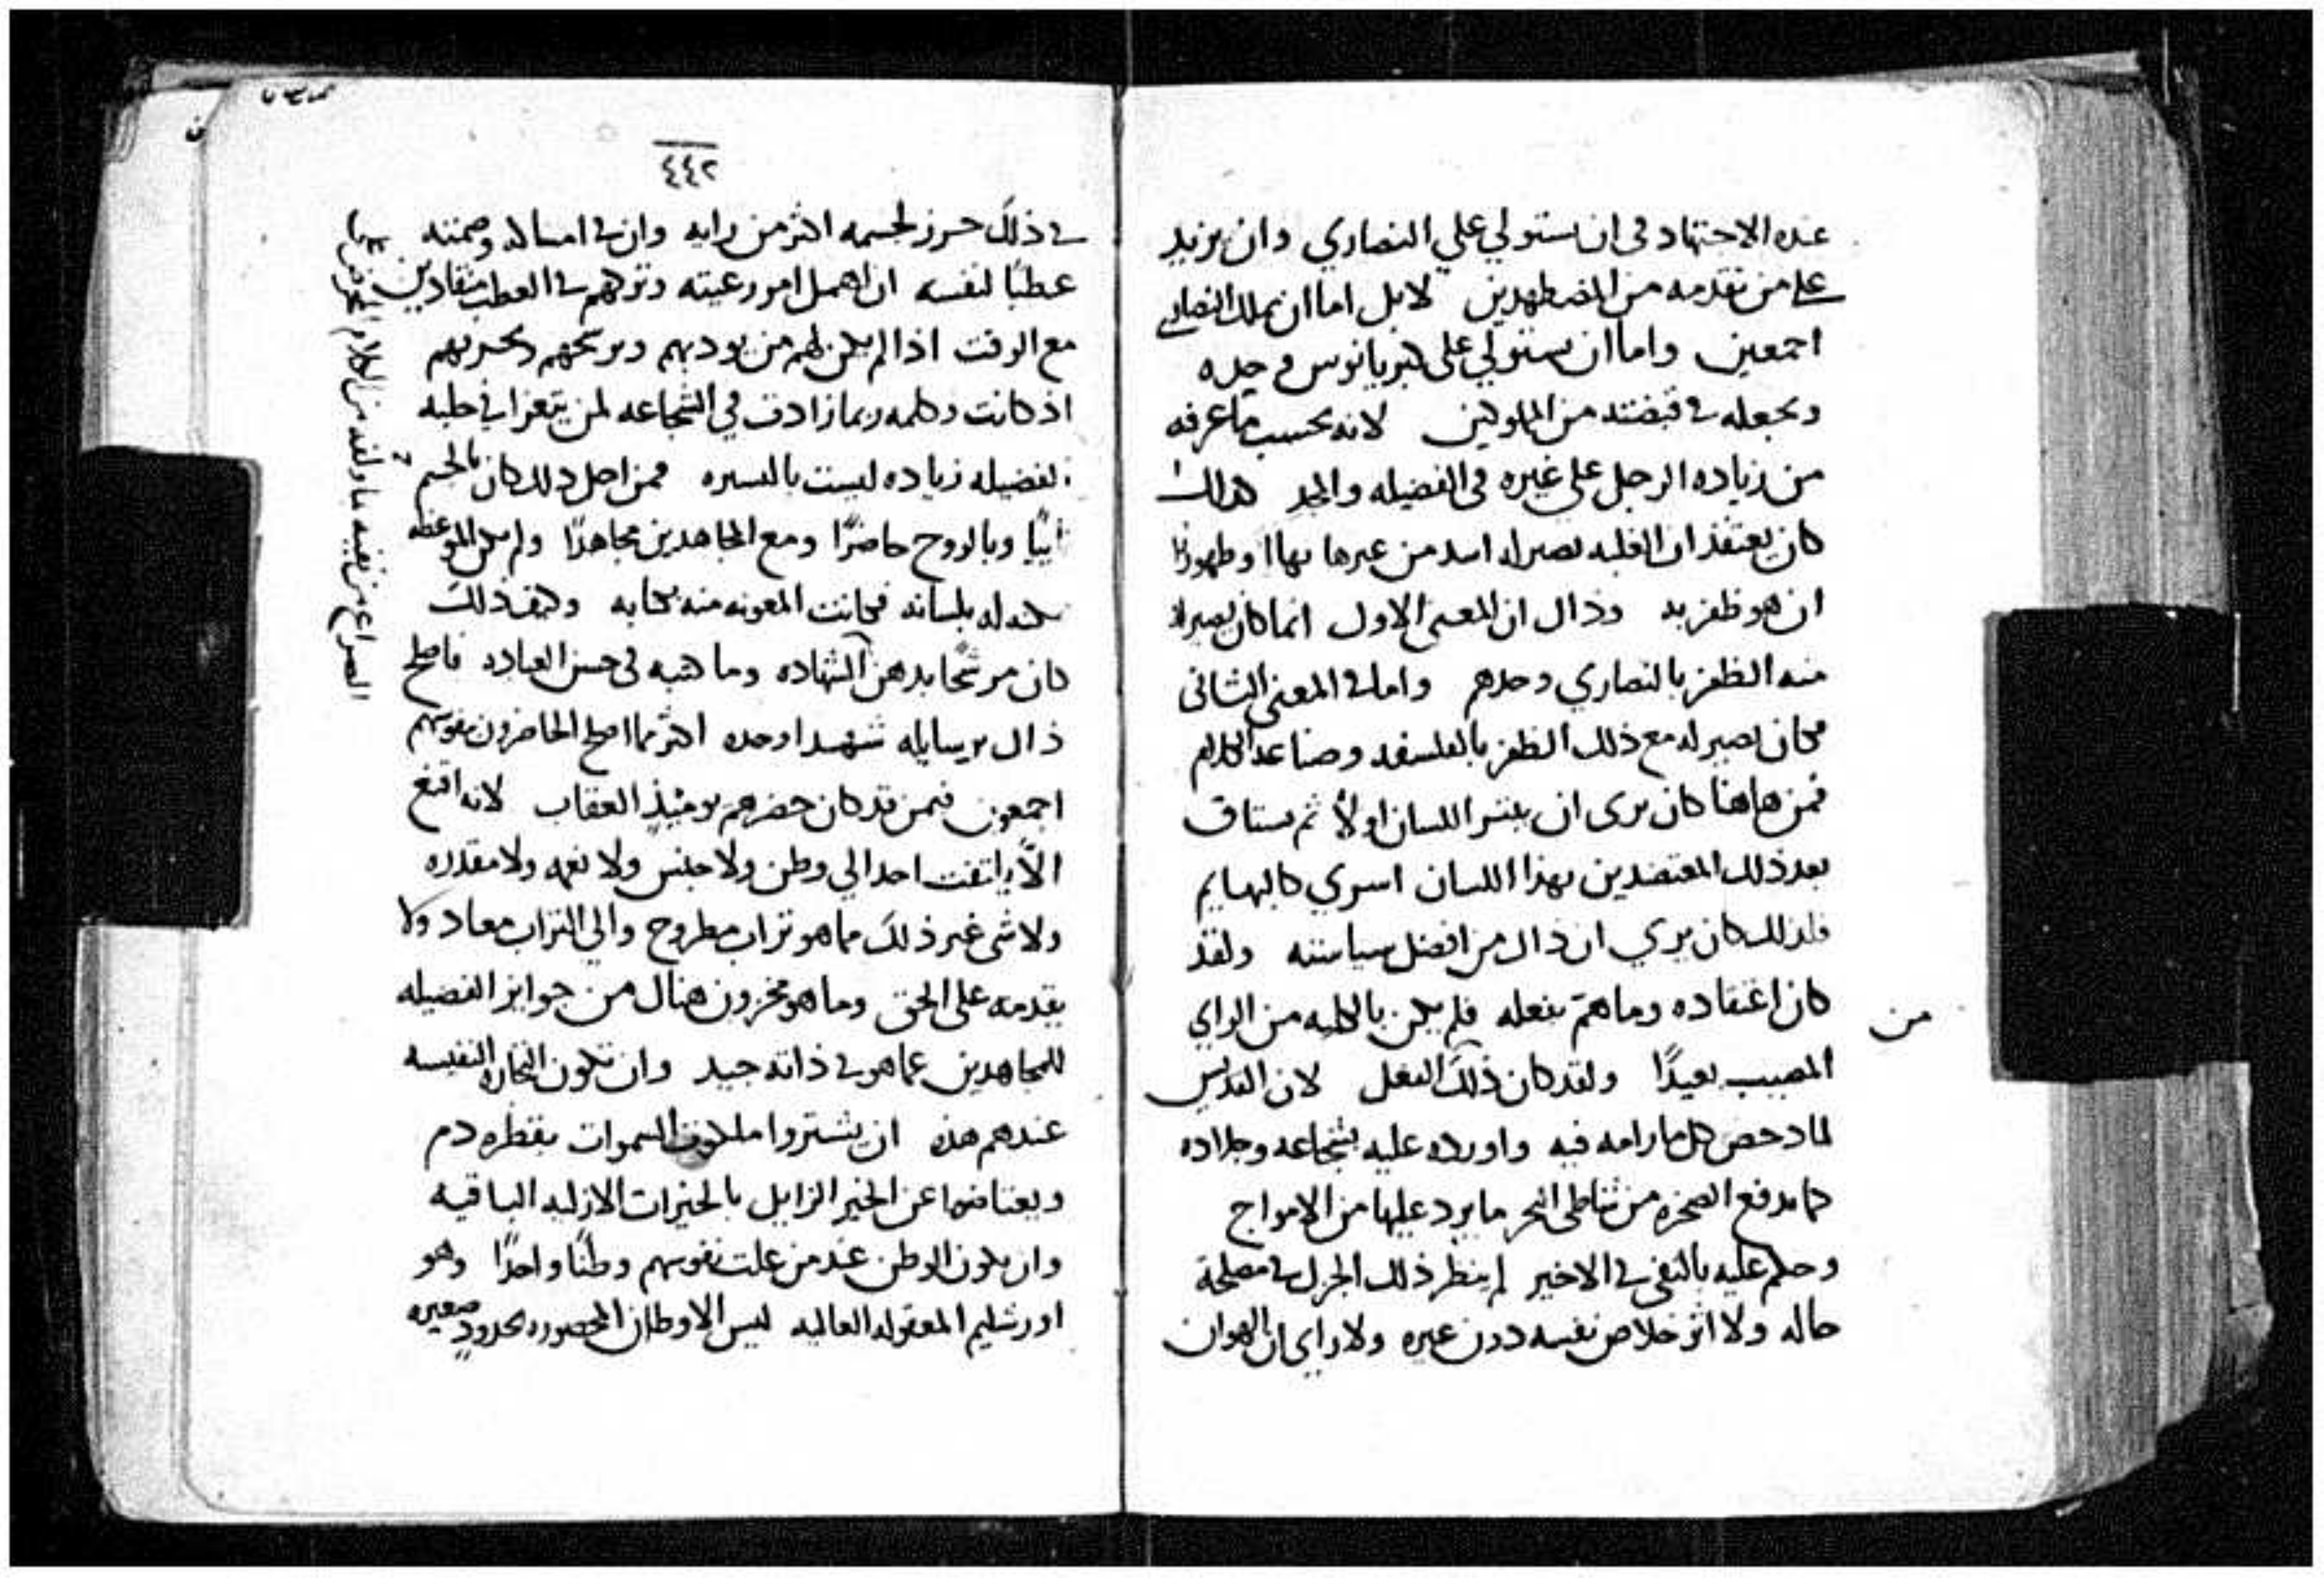 عنده الاجتهاد فى ان يستولي علي النصاري وان يزيد
على من تقدمه من المضطهدين لا بل اما ان يملك النصارى
اجمعين واما ان يستولي على كبريانوس وحده
ويجعله في قبضته من المملوكين لانه بحسب ما عرفه
من زياده الرجل على غيره فى الفضيله والمجد كذلك
كان يعتقد ان الغلبه تصير له اشد من غيرها بهاا وظهورًا
ان هو ظفر به وذاك ان المعنى الاول انما كان يصير له
منه الظفر بالنصاري وحدهم واما في المعنى الثانى
فكان يصير له مع ذلك الظفر بالفلسفه وصناعه الكلام
فمن هاهنا كان يرى ان اللسان اولاً ثم يستاق
بعد ذلك المعتضدين بهذا اللسان اسري كالبهايم
فلذلك كان يري ان ذاك من افضل سياسته ولقد
كان اعتقاده وما همّ بفعله فلم يكن بالكليه من الراي
من
المصيب بعيدًا ولقد كان ذلك الفعل لان القديس
لما دحض كل ما رامه فيه واورده عليه بشجاعه وجلاده
كما تدفع الصخره من شاطى البحر ما يرد عليها من الامواج
وحكم عليه بالنفى في الاخير لم ينظر ذلك الجزل في مصلحة
حاله ولا اثر خلاص نفسه دون غيره ولا راي ان الهوان
٤٤٢
في ذلك حرز لجسمه اكثر من رايه وان في امساكه وصمته
عطبًا لنفسه ان اهمل امور رعيته وتركهم في العطب منقادين
مع الوقت اذا لم يكن لهم من يودبهم ويرشحهم ويخبرهم
اذ كانت كلمه ربما زادت في الشجاعه لمن يتعرا في حلبه
الفضيله زياده ليست باليسيره فمن اجل ذلك كان بالجسم
نايبًا وبالروح حاضرًا ومع المجاهدين مجاهدًا ولم يكن الموعظه
له بلسانه فكانت المعونه منه بكتابه وكيف ذلك
كان مرشحًا بدهن الشهاده وما كتبه فى حسن العباده فاصلح
ذاك برسايله شهدا وحده اكثر مما اصلح الحاضرون نفوسهم
اجمعون فيمن قد كان حضرهم يوميذٍ العقاب لانه اقنع
الاّ يلتفت احد الي وطن ولا جنس ولا نعمه ولا مقدره
ولا شى غير ذلك مما هو تراب مطروح والي التراب معاد ولا
يقدمه على الحق وما هو مخزون هناك من جوايز الفضيله
للمجاهدين عما هو في ذاته جيد وان تكون التجاره النفيسه
عندهم هذه ان يشتروا ملكوت السموات بقطره دم
ويعتاضوا عن الخير الزايل بالخيرات الازليه الباقيه
وان يكون الوطن عند من علت نفوسهم وطنًا واحدًا وهو
اورشليم المعقوله العاليه ليس الاوطان المحصوره بحدودٍ صغيره